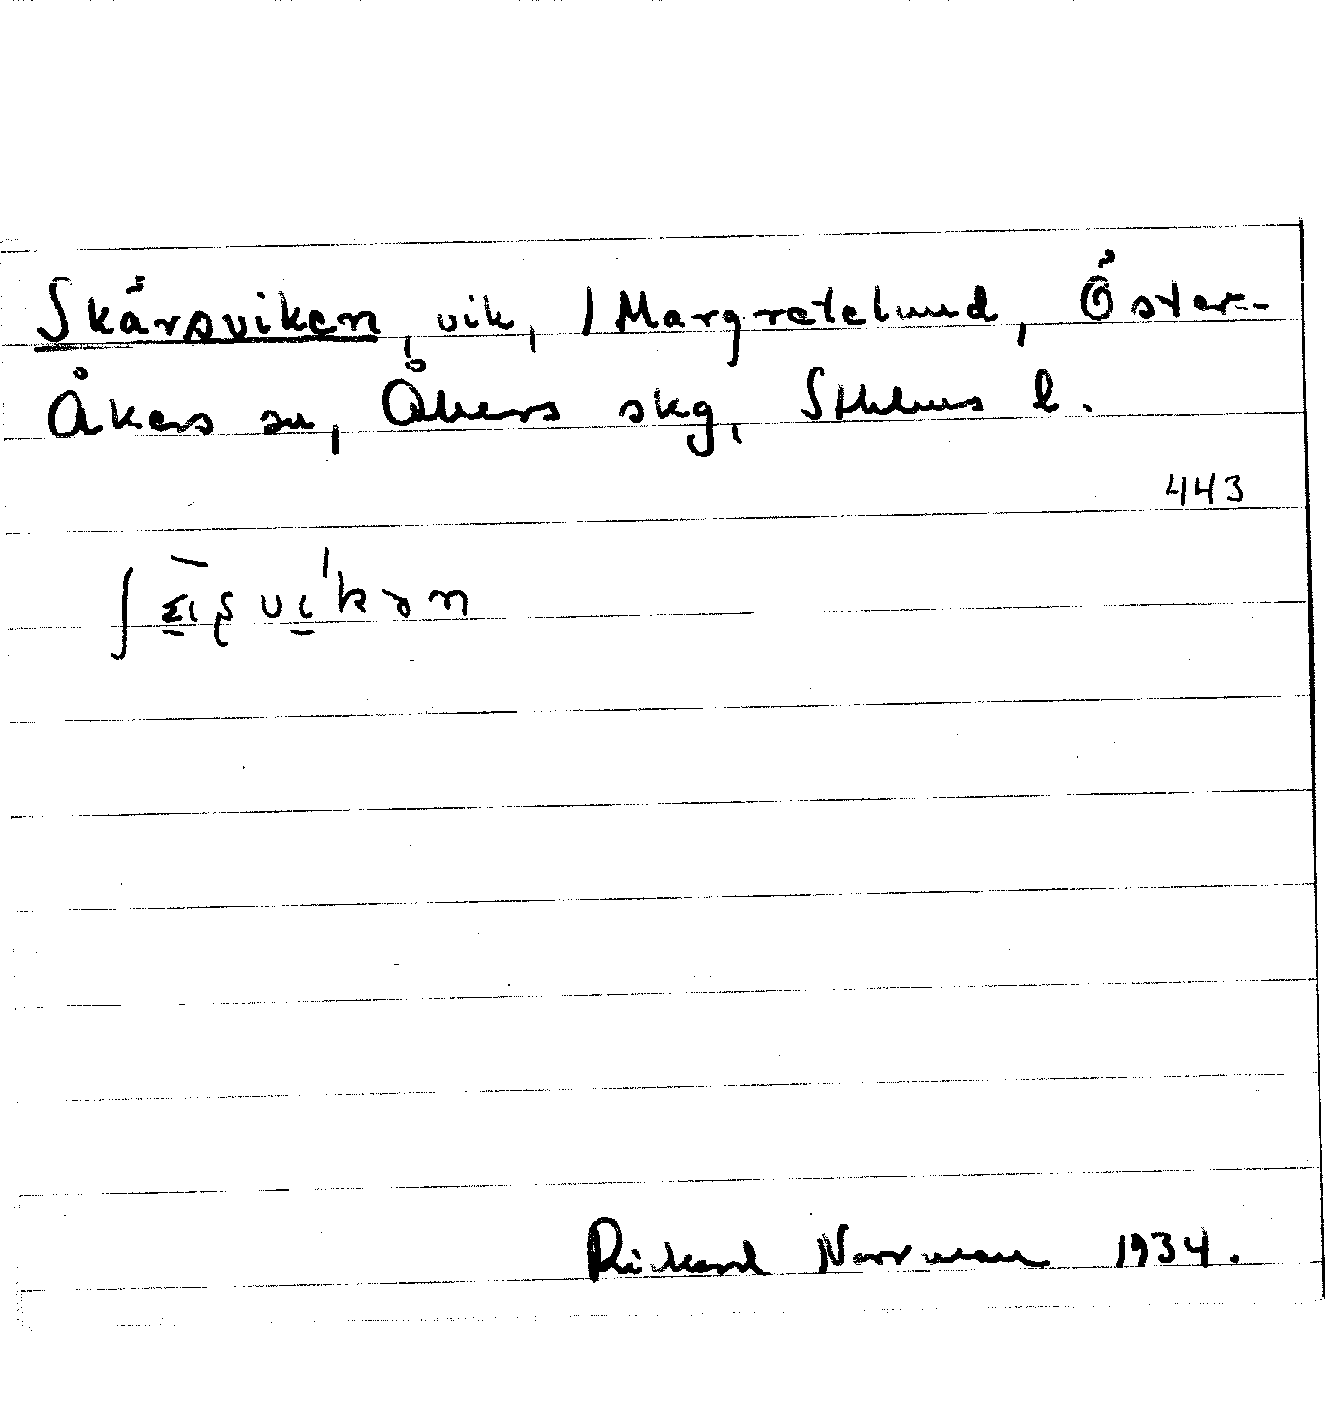 Skärsviken, vik, / Margretelund, Öster-
Åkers sn, Åkers skg, Sthlms l.
443
Rickard Norrman 1934.